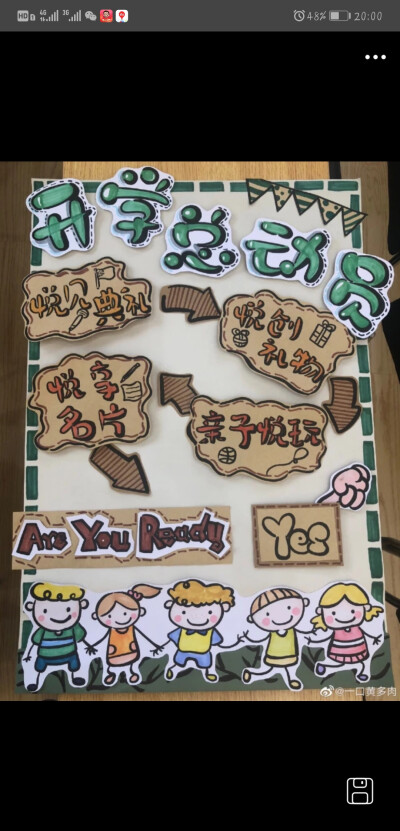 HD 4G 3G 48% 20:00
开学总动员
悦 典礼
悦创
礼物
悦享
名片
亲子悦玩
Are You Ready
Yes
@一口黄多肉